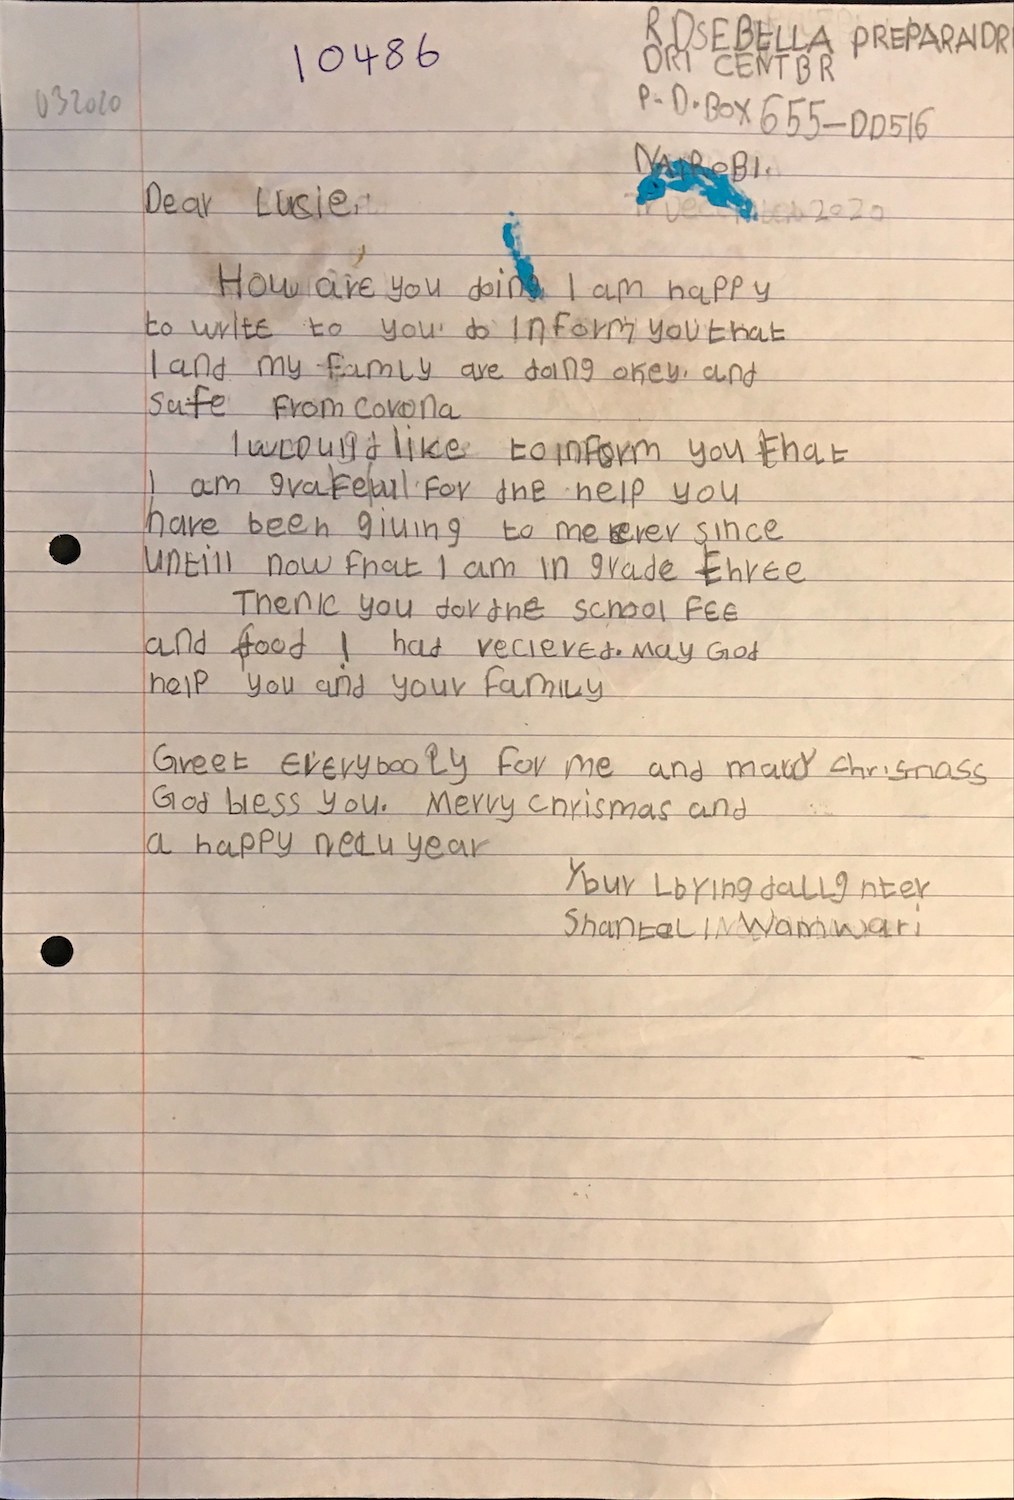 10486
ROSEBELLA PREPARATORI
ORI CENTBR
032020
P.O.BOX 655-00516
NAIROBI.
December 2020
Dear Lusie,
How are you doing I am happy
to write to you. do Inform you that
I and my famly are doing okey. and
safe From corona
I would like to inform you that
I am grateful for the help you
have been giving to me ever since
untill now that I am in grade three
Thenk you for the school FEE
and food I had recieved. May God
help you and your family
Greet Everybody for me and marry chrismass
God bless you. Merry chrismas and
a happy new year
Your Loving daughter
Shantel Wamwari